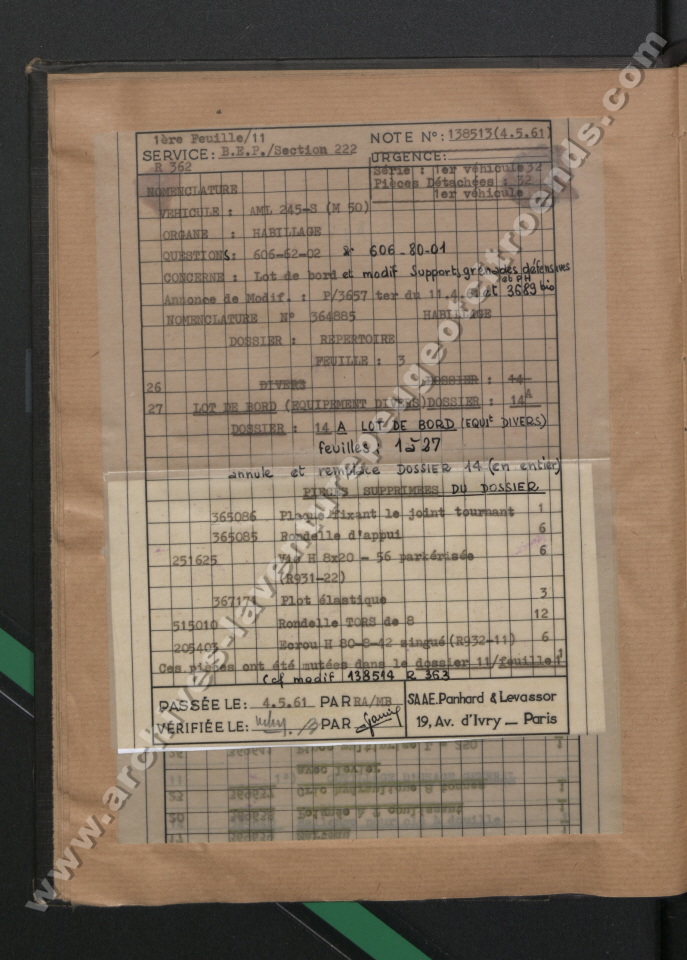 1ère Feuille/11
NOTE N°: 138513(4.5.61)
SERVICE: B.E.P./Section 222
URGENCE:
R 362
Série : 1er véhicule 32
Pièces Détachées : 32
1er véhicule
NOMENCLATURE
VEHICULE : AML 245-S (M 50)
ORGANE : HABILLAGE
QUESTIONS: 606-62-02 & 606-80-01
CONCERNE : Lot de bord et modif Supports grenades défensives
Annonce de Modif. : P/3657 ter du 11.4.61 et 3689 bis
NOMENCLATURE N° 364885 HABILLAGE
DOSSIER : REPERTOIRE
FEUILLE : 3
26 DIVERS DOSSIER : 14
27 LOT DE BORD (EQUIPEMENT DIVERS) DOSSIER : 14A
DOSSIER : 14 A LOT DE BORD (EQUIt DIVERS)
feuilles : 1 à 27
annule et remplace DOSSIER 14 (en entier)
PIECES SUPPRIMEES DU DOSSIER
365086 Plaque fixant le joint tournant 1
365085 Rondelle d'appui 6
251625 Vis H 8x20 - 56 parkérisée 6
(R931-22)
Plot élastique 3
515010 Rondelle TORS de 8 12
205403 Ecrou H 80-8-42 zingué (R932-11) 6
Ces pièces ont été mutées dans le dossier 11/feuille 1
(cf modif 138514 R 363
PASSÉE LE: 4.5.61 PAR RA/MB
SAAE. Panhard & Levassor
VÉRIFIÉE LE: PAR
19, Av. d'Ivry _ Paris
www.archives-laventurepeugeotcitroends.com